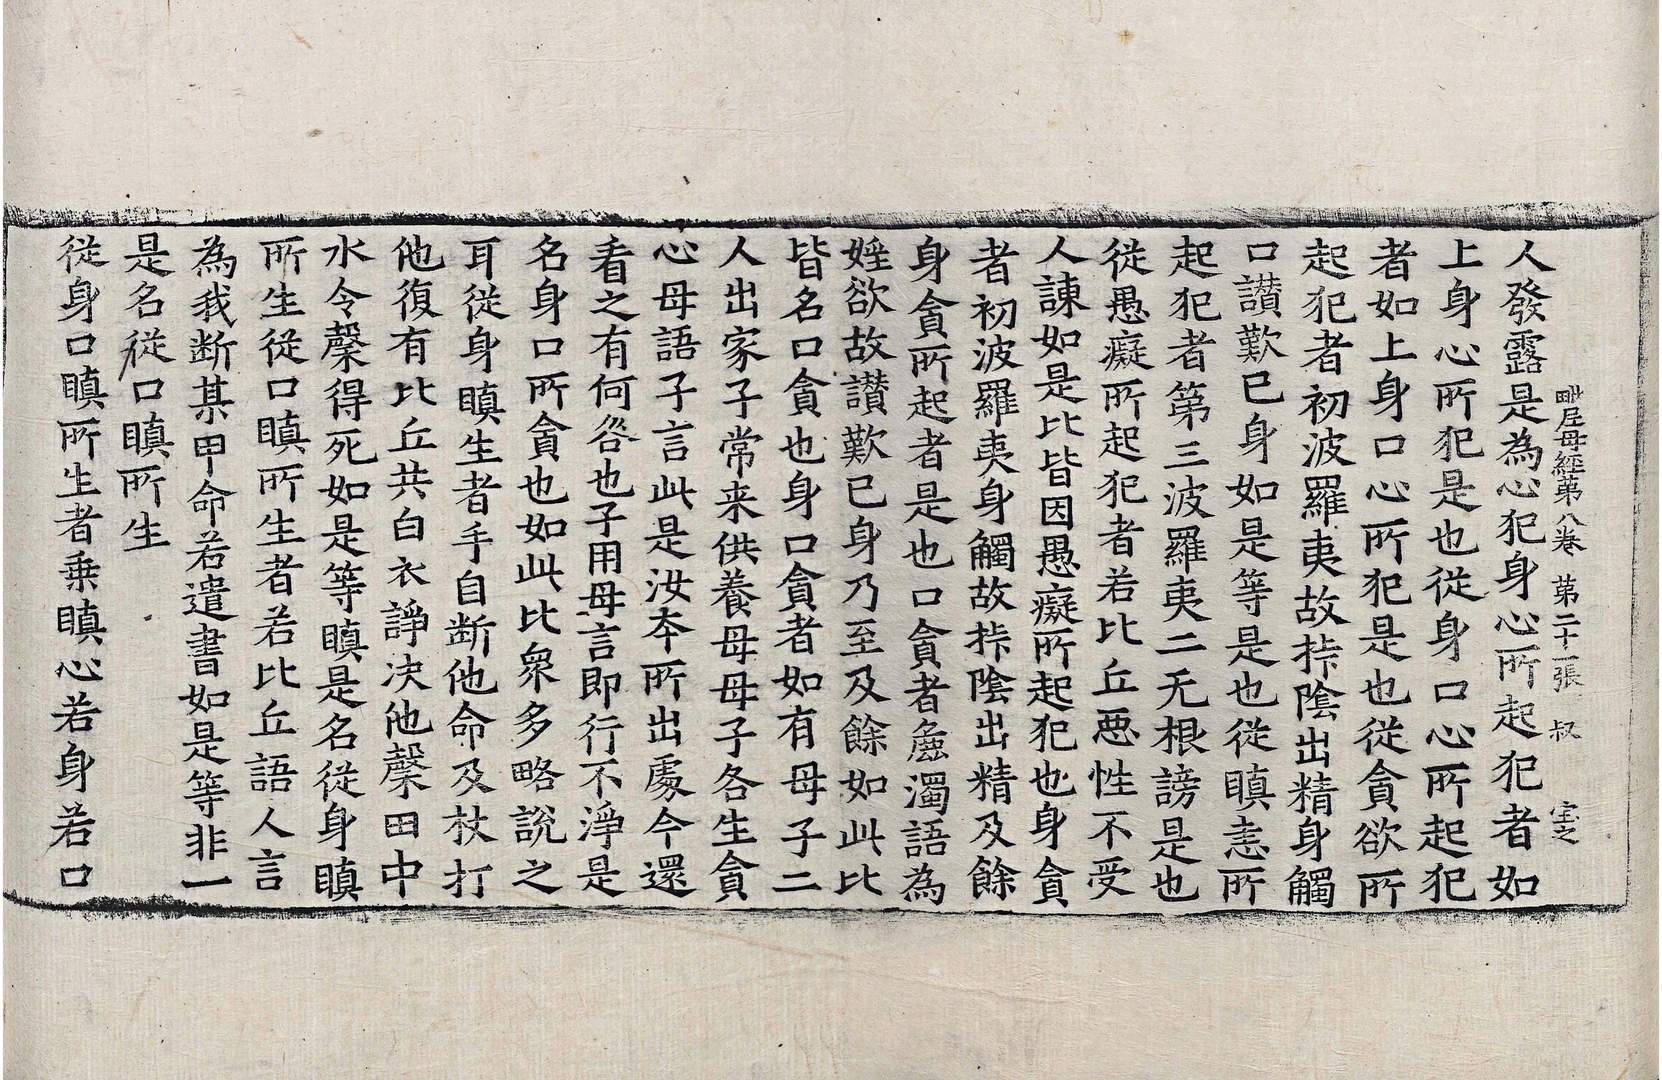 毗尼母經第八卷　第二十一張　叔　宝之
人發露是為心犯身心所起犯者如
上身心所犯是也從身口心所起犯
者如上身口心所犯是也從貪欲所
起犯者初波羅夷故㧗陰出精身觸
口讚歎已身如是等是也從瞋恚所
起犯者第三波羅夷二无根謗是也
從愚癡所起犯者若比丘惡性不受
人諫如是比皆因愚癡所起犯也身貪
者初波羅夷身觸故㧗陰出精及餘
身貪所起者是也口貪者麁濁語為
婬欲故讚歎已身乃至及餘如此比
皆名口貪也身口貪者如有母子二
人出家子常来供養母母子各生貪
心母語子言此是汝夲所出處今還
看之有何咎也子用母言即行不淨是
名身口所貪也如此比衆多略説之
耳從身瞋生者手自断他命及杖打
他復有比丘共白衣諍决他槃田中
水令槃得死如是等瞋是名從身瞋
所生從口瞋所生者若比丘語人言
為我断某甲命若遣書如是等非一
是名從口瞋所生
從身口瞋所生者乗瞋心若身若口